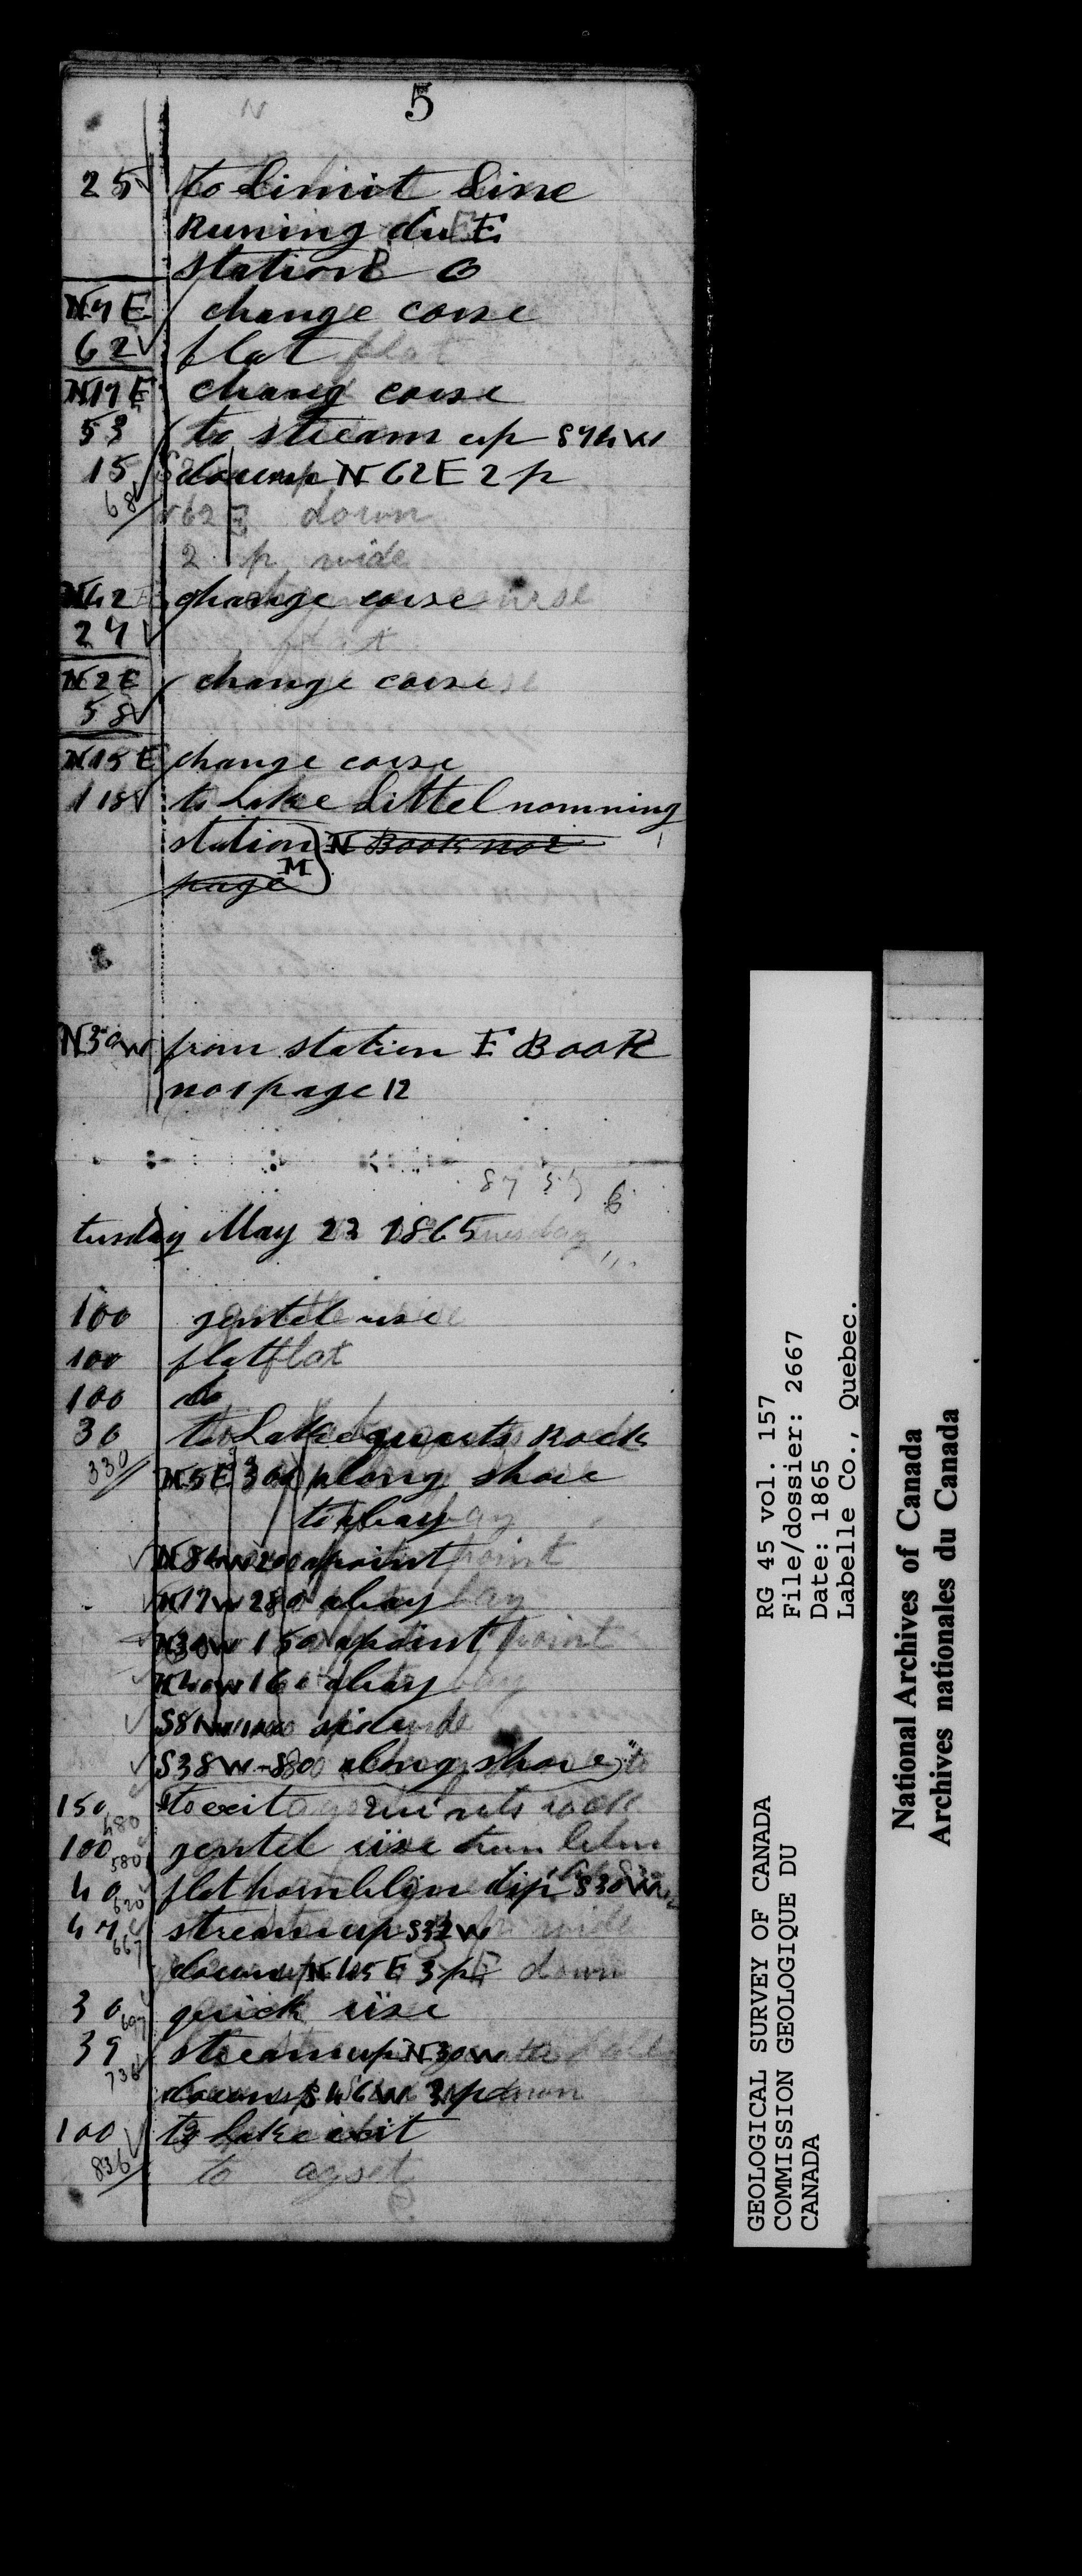 5
25 to Limit Line
Runing du E
station O
N7E change corse
62 flat
N17E chang corse
53 to stream up S74W
15 down N62E 2p
68 N62E down
2 p wide
N42 change corse
27
N2E change corse
58
N15E change corse
118 to Lake Littel nomning
station M N Book no2
page
N30W from station E Book
no1 page 12
6
tusday May 23 1865 tuesday
100 gentel rise
100 flat flat
100 do
30 to Lake quarts Rock
330 N5E 300 along shore
to abay
N84W 200 apoint point
N17W 280 abay bay
N30W 150 apoint point
N40W 160 abay bay
S8
S38W 880 along shore
150 to exit
480
100 gentel rise
580
40 flat hornblen dip S30W
620
47 stream up S32W
667 down N45E 3p down
30 quick rise
697
39 stream up N30W
736 down S46W 3p down
100 to Lake exit
836 to
GEOLOGICAL SURVEY OF CANADA
COMMISSION GEOLOGIQUE DU
CANADA
RG 45 vol. 157
File/dossier: 2667
Date: 1865
Labelle Co., Quebec.
National Archives of Canada
Archives nationales du Canada